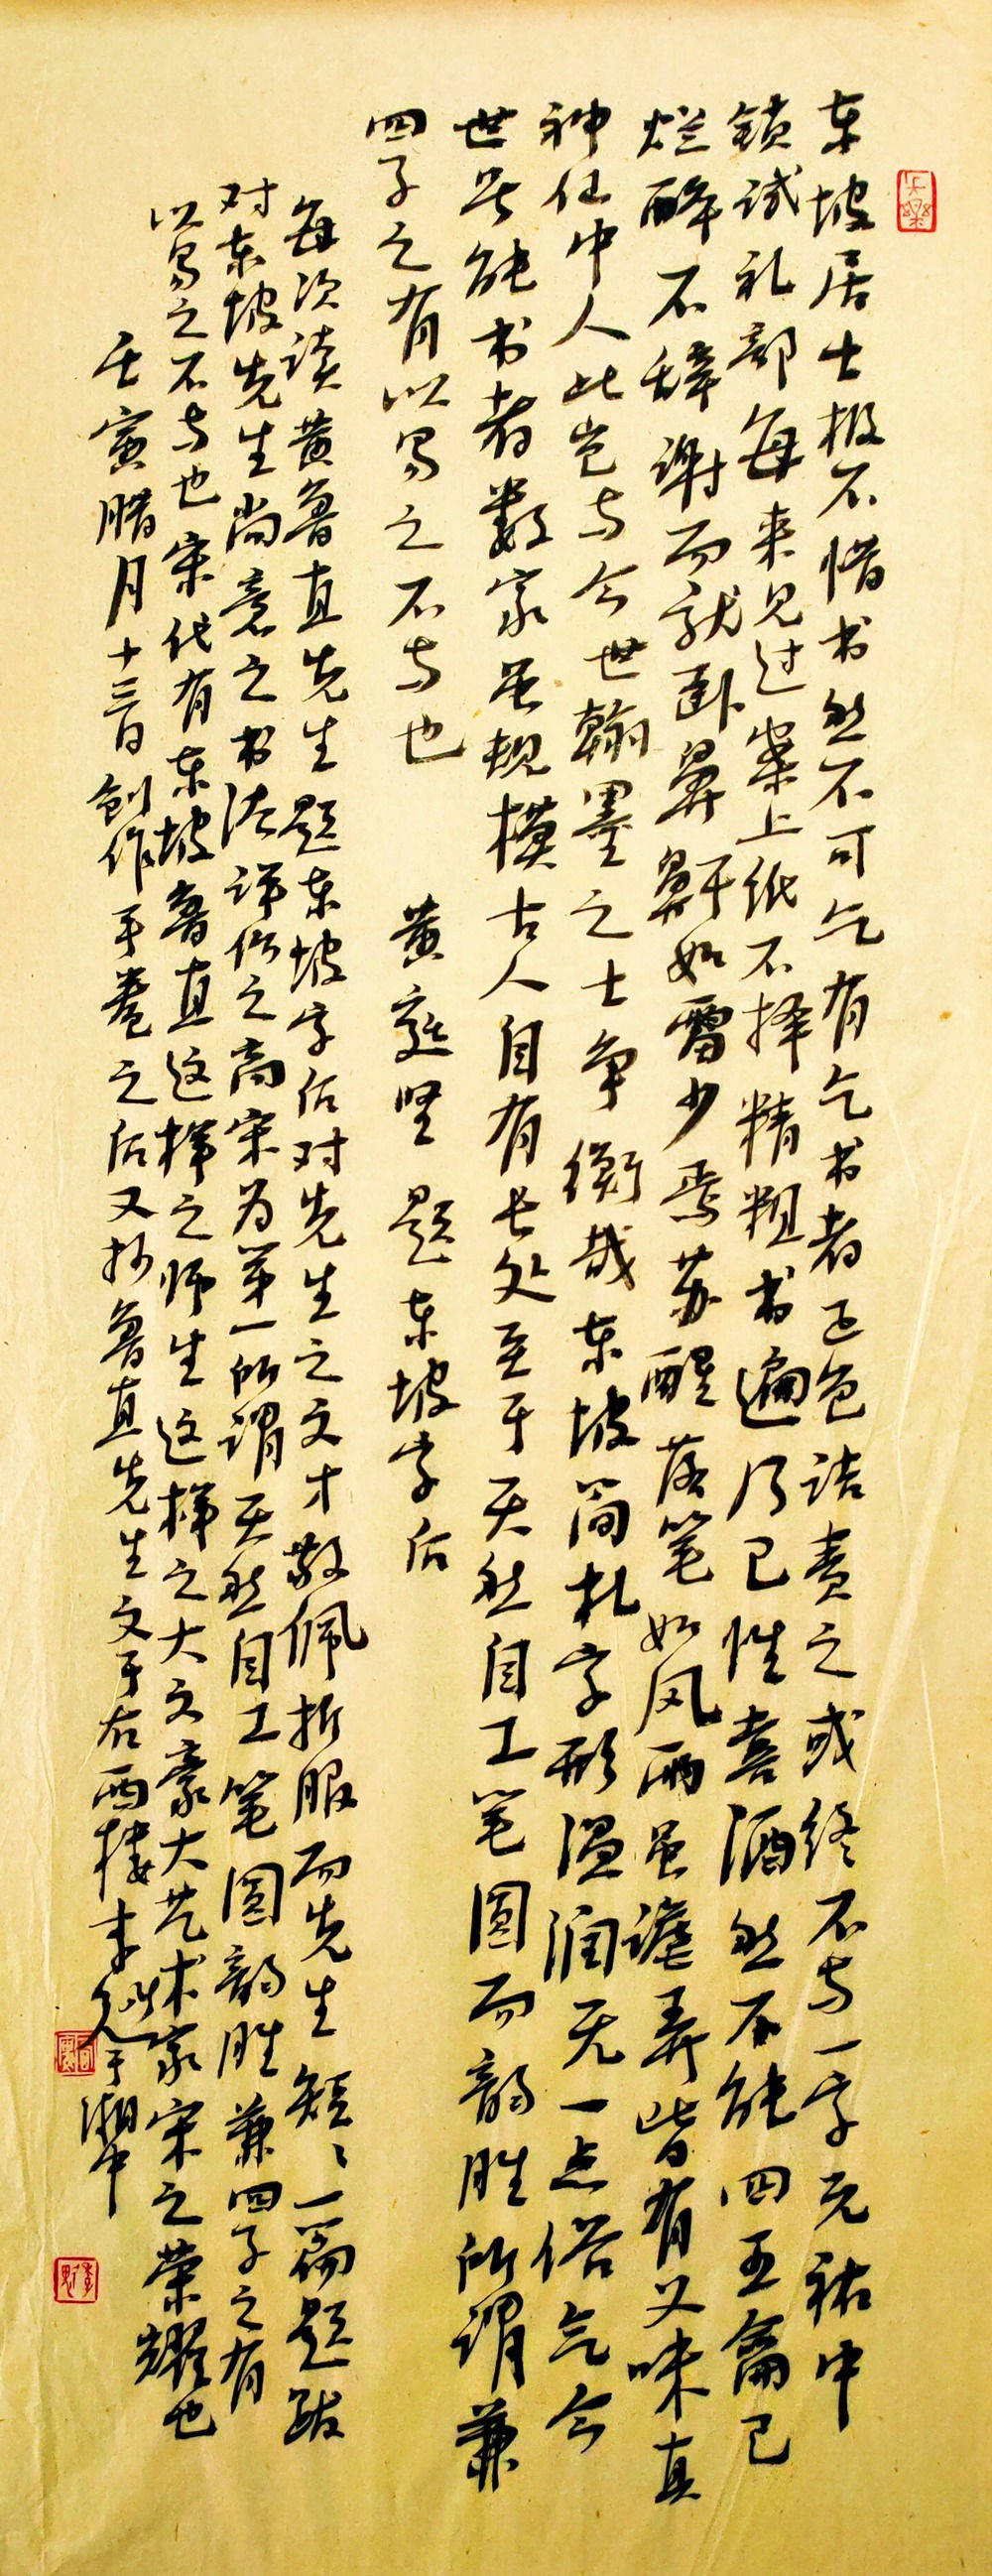 东坡居士极不惜书然不可乞有乞书者正色诘责之或终不与一字元祐中
锁试礼部每来见过案上纸不择精粗书遍乃已性喜酒然不能四五龠已
烂醉不辞谢而就卧鼻鼾如雷少焉苏醒落笔如风雨虽谑弄皆有义味真
神仙中人此岂与今世翰墨之士争衡哉东坡简札字形温润无一点俗气今
世号能书者数家虽规模古人自有长处至于天然自工笔圆而韵胜所谓兼
四子之有以易之不与也 黄庭坚 题东坡字后
每次读黄鲁直先生题东坡字后对先生之文才敬佩折服而先生短短一篇题跋
对东坡先生尚意之书法评价之高宋为第一所谓天然自工笔圆韵胜兼四子之有
以易之不与也宋代有东坡鲁直这样之师生这样之大文豪大艺术家宋之荣耀也
壬寅腊月十三日创作手卷之后又抄鲁直先生文于右西楼李 于湘中